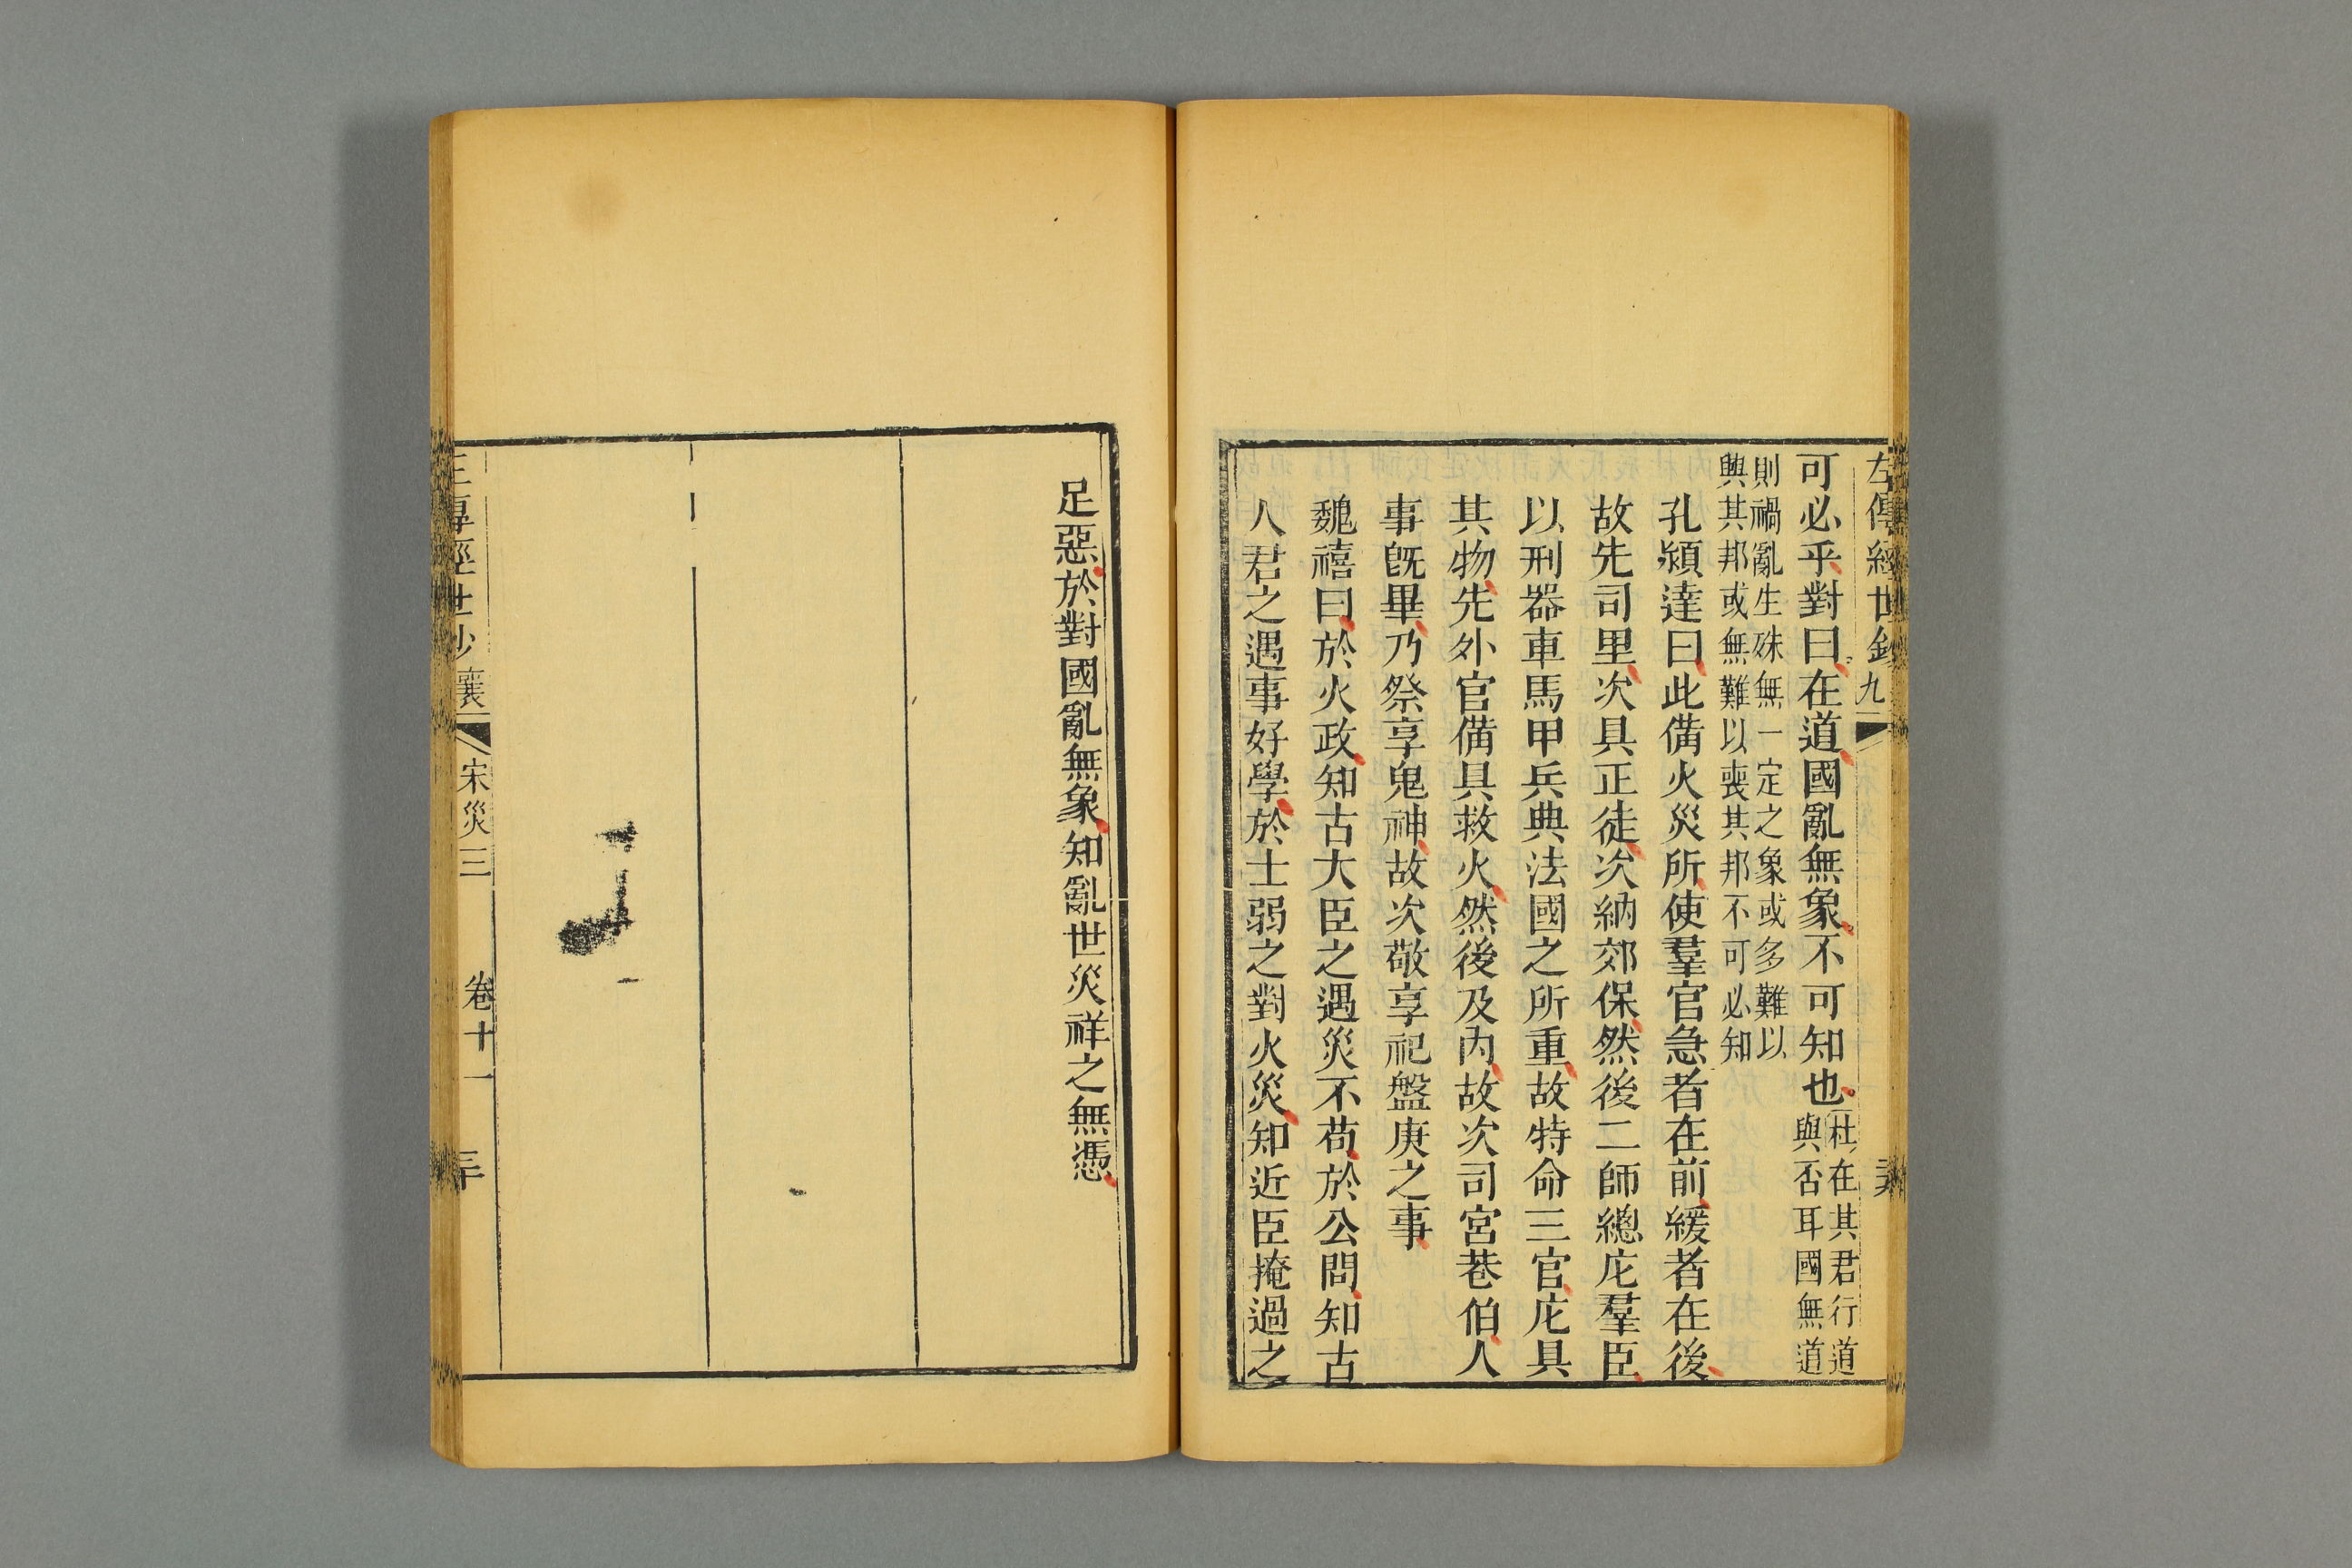 左傳經世鈔 九
可必乎對曰在道國亂無象不可知也杜在其君行道與否耳國無道
則禍亂生殊無一定之象或多難以興其邦或無難以喪其邦不可必知
孔潁達曰此備火災所使羣官急者在前緩者在後
故先司里次具正徒次納郊保然後二師總庀羣臣
以刑器車馬甲兵典法國之所重故特命三官庀具
其物先外官備具救火然後及內故次司宮巷伯人
事旣畢乃祭享鬼神故次敬享祀盤庚之事
魏禧曰於火政知古大臣之遇災不苟於公問知古
人君之遇事好學於士弱之對火災知近臣掩過之
足惡於對國亂無象知亂世災祥之無憑
經世鈔 襄 宋災三 卷十一